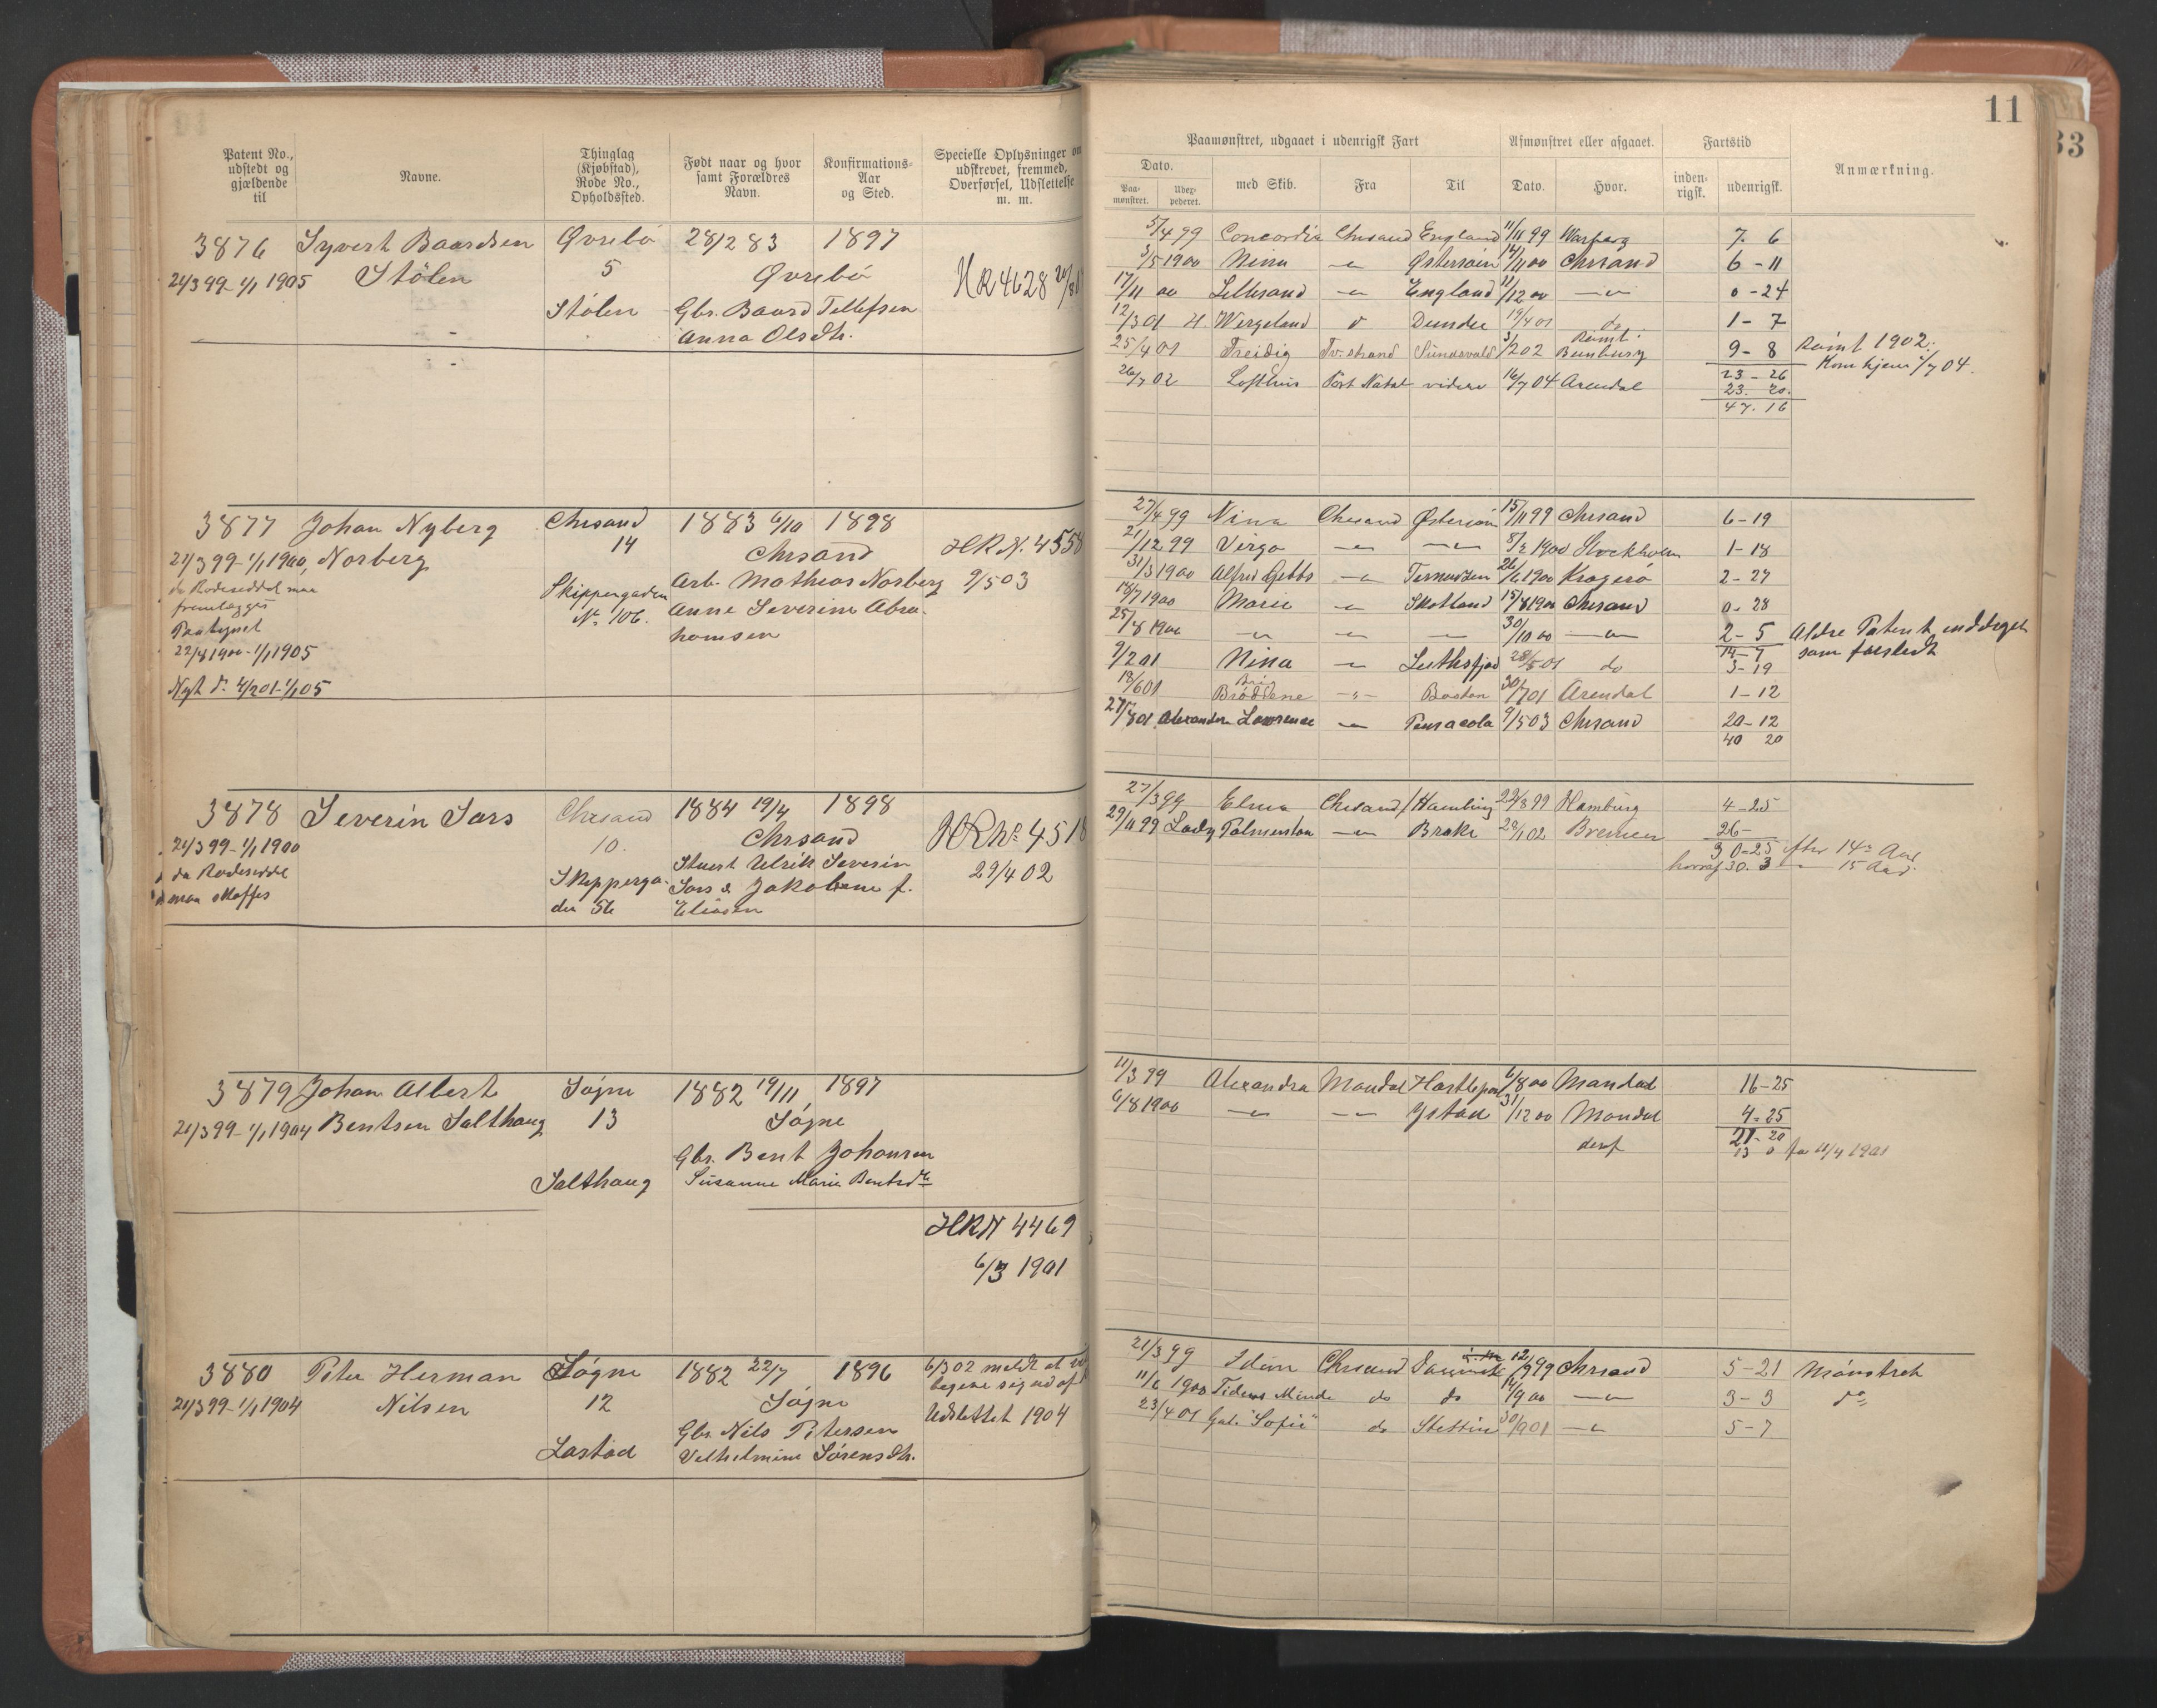 11
33
Patent No., udstedt og gjældende til
Navne.
Thinglag (Kjøbstad), Rode No., Opholdssted.
Født naar og hvor samt Forældres Navn.
Konfirmations-Aar og Sted.
Specielle Oplysninger om udskrevet, fremmed, Overførsel, Udslettelse m. m.
Paamønstret, udgaaet i udenrigsk Fart
Afmønstret eller afgaaet.
Fartstid
Anmærkning.
Dato.
med Skib.
Fra
Til
Dato.
Hvor.
inden-rigsk.
udenrigsk.
Paa-mønstret.
Udex-pederet.
3876 Syvert Baardsen Øvrebø 28/2 83 1897
21/3 99 - 1/1 1905 Stölen 5 Øvrebø HR 4628
Stölen Gbr. Baard Tellefsen
Anna Olsdtr.
5/4 99 Concordia Chrsand England 11/11 99 Warberg 7. 6
3/5 1900 Nina -"- Østersøen 14/11 00 Chrsand 6-11
17/11 00 Lillesand -"- England 11/12 00 -"- 0-24
12/3 01 H Wergeland d Dundee 19/4 01 do 1-7
25/4 01 Freidig Tv.strand Sundsvald 3/1 202 Rømt. Bunbury 9-8 Rømt 1902.
26/7 02 Lofthus Port Natal videre 16/7 04 Arendal 23-26 Kom hjem 1/7 04.
23. 20.
47. 16
3877 Johan Nyberg Chrsand 1883 6/10 1898
21/3 99 - 1/1 1900, Norberg 14 Chrsand HR N. 4558
da Rodeseddel maa Skippergaden Arb. Mathias Norberg 9/5 03
fremlægges N. 106. Anne Severine Abra-
Paategnet hamsen
22/8 1900 - 1/1 1905
Nyt d. 4/2 01 - 1/1 05
27/4 99 Nina Chrsand Østersøen 15/11 99 Chrsand 6-19
21/12 99 Virgo -"- -"- 8/2 1900 Stockholm 1-18
31/3 1900 Alfred Gibbs -"- Terneuzen 26/6 1900 Kragerø 2-27
18/7 1900 Marie -"- Skotland 15/8 1900 Chrsand 0-28
25/8 1900 -"- -"- - 30/10 00 -"- 2-5 Aldre Patent inddraget
14-7 som forsledt
9/2 01 Nina -"- Leithsfjord 28/5 01 do 3-19
18/6 01 Brig Brødrene -"- Boston 30/7 01 Arendal 1-12
27/8 01 Alexander Lawrence -"- Pensacola 9/5 03 Chrsand 20-12
40 20
3878 Severin Sars Chrsand 1884 19/4 1898
21/3 99 - 1/1 1900 10. Chrsand HR No. 4518
da Rodeseddel Skipperga- Stuert Ulrik Severin 29/4 02
maa skaffes den 56 Sars & Jakobine f.
Eliasen
27/3 99 Elma Chrsand Hamburg 22/8 99 Hamburg 4-25
29/11 99 Lady Palmerston -"- Brake 29/1 02 Bremen 26-
30-25 efter 14de Aar
hvoraf 30. 3 -"- 15 Aar.
3879 Johan Albert Søgne 1882 19/11 1897
21/3 99 - 1/1 1904 Bentsen Salthaug 13 Søgne
Gbr. Bent Johansen
Salthaug Susanne Marie Bentsdtr
HRN 4469
6/3 1901
11/3 99 Alexandra Mandal Hartlepool 6/8 00 Mandal 16-25
6/8 1900 -"- -"- Ystad 31/12 00 Mandal 4-25
21-20
deraf 13 0 før 11/4 1901
3880 Peter Herman Søgne 1882 22/7 1896 6/3 02 meldt at
21/3 99 - 1/1 1904 Nilsen 12 Søgne begive sig ud af
Gbr. Nils Petersen Udslettet 1904
Lastad Vilhelmine Sørensdtr.
21/3 99 Idun Chrsand Danmark 12/9 99 Chrsand 5-21 Mønstret
11/6 1900 Tidens Minde do do 14/9 00 -"- 3-3 do
23/4 01 Gal. "Sofie" do Stettin 30/9 01 -"- 5-7